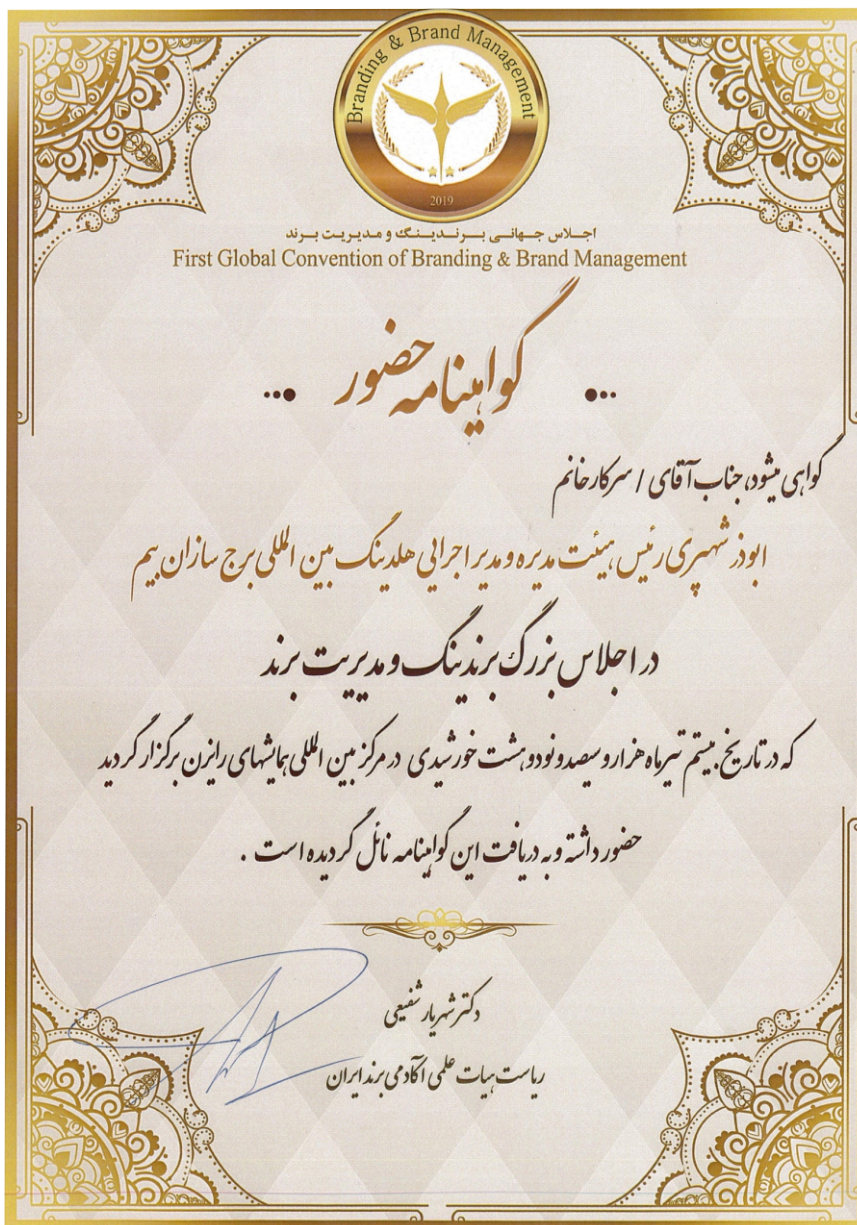 Branding & Brand Management
2019
اجلاس جهانی برندینگ و مدیریت برند
First Global Convention of Branding & Brand Management
گواهینامه حضور
گواهی میشود، جناب آقای / سرکار خانم
ابوذر شهپری رئیس هیئت مدیره و مدیر اجرایی هلدینگ بین المللی برج سازان بیم
در اجلاس بزرگ برندینگ و مدیریت برند
که در تاریخ بیستم تیرماه هزار و سیصد و نود و هشت خورشیدی در مرکز بین المللی همایشهای رایزن برگزار گردید
حضور داشته و به دریافت این گواهینامه نائل گردیده است .
دکتر شهریار شفیعی
ریاست هیات علمی آکادمی برند ایران